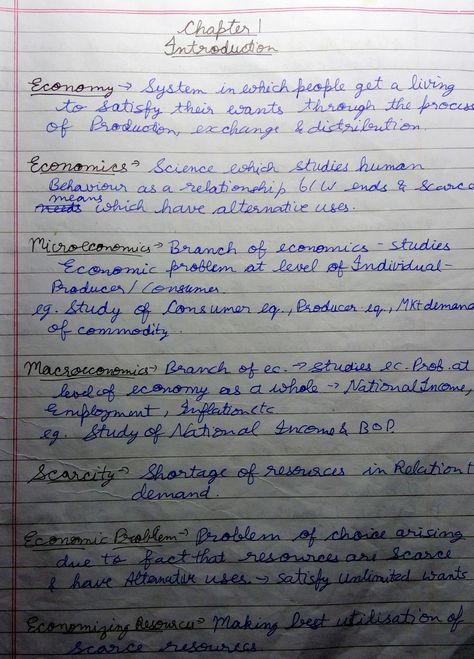 Chapter 1
Introduction
Economy → System in which people get a living
to satisfy their wants through the process
of Production, exchange & distribution.
Economics → Science which studies human
Behaviour as a relationship b/w ends & scarce
means
needs which have alternative uses.
Microeconomics → Branch of economics - studies
Economic problem at level of Individual -
Producer / Consumer
eg. Study of Consumer eq., Producer eq., Mkt demand
of commodity.
Macroeconomics → Branch of ec. → studies ec. Prob. at
level of economy as a whole → National Income,
Employment, Inflation etc
eg. Study of National Income & BOP.
Scarcity → Shortage of resources in Relation t
demand.
Economic Problem → Problem of choice arising
due to fact that resources are scarce
& have Alternative uses. → satisfy unlimited wants
Economizing Resources → Making best utilisation of
scarce resources